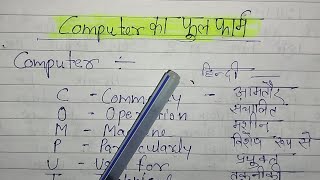 Computer का फुल फार्म
Computer :- हिन्दी
C - Commonly - आमतौर
O - Operation संचालित
M - Machine मशीन
P - Particularly विशेष रूप से
U - for प्रयुक्त
T - तकनीकी